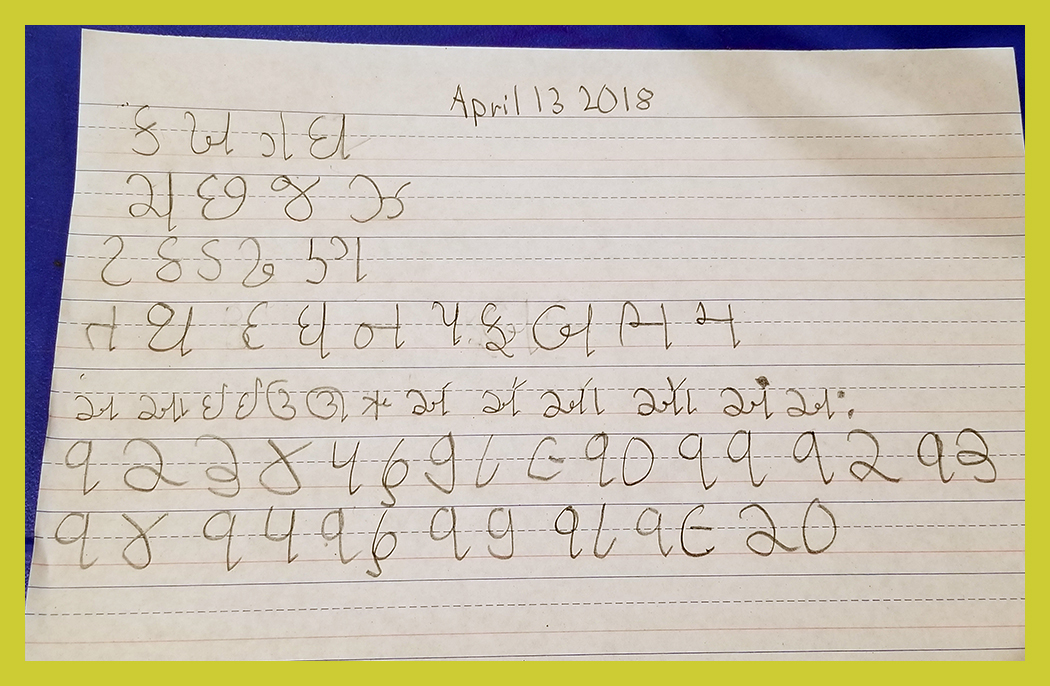 April 13 2018
ક ખ ગ ઘ
ચ છ જ ઝ
ટ ઠ ડ ઢ ણ
ત થ દ ધ ન પ ફ બ ભ મ
અ આ ઇ ઈ ઉ ઊ ઋ એ ઐ ઓ ઔ અં અઃ
૧ ૨ ૩ ૪ ૫ ૬ ૭ ૮ ૯ ૧૦ ૧૧ ૧૨ ૧૩
૧૪ ૧૫ ૧૬ ૧૭ ૧૮ ૧૯ ૨૦